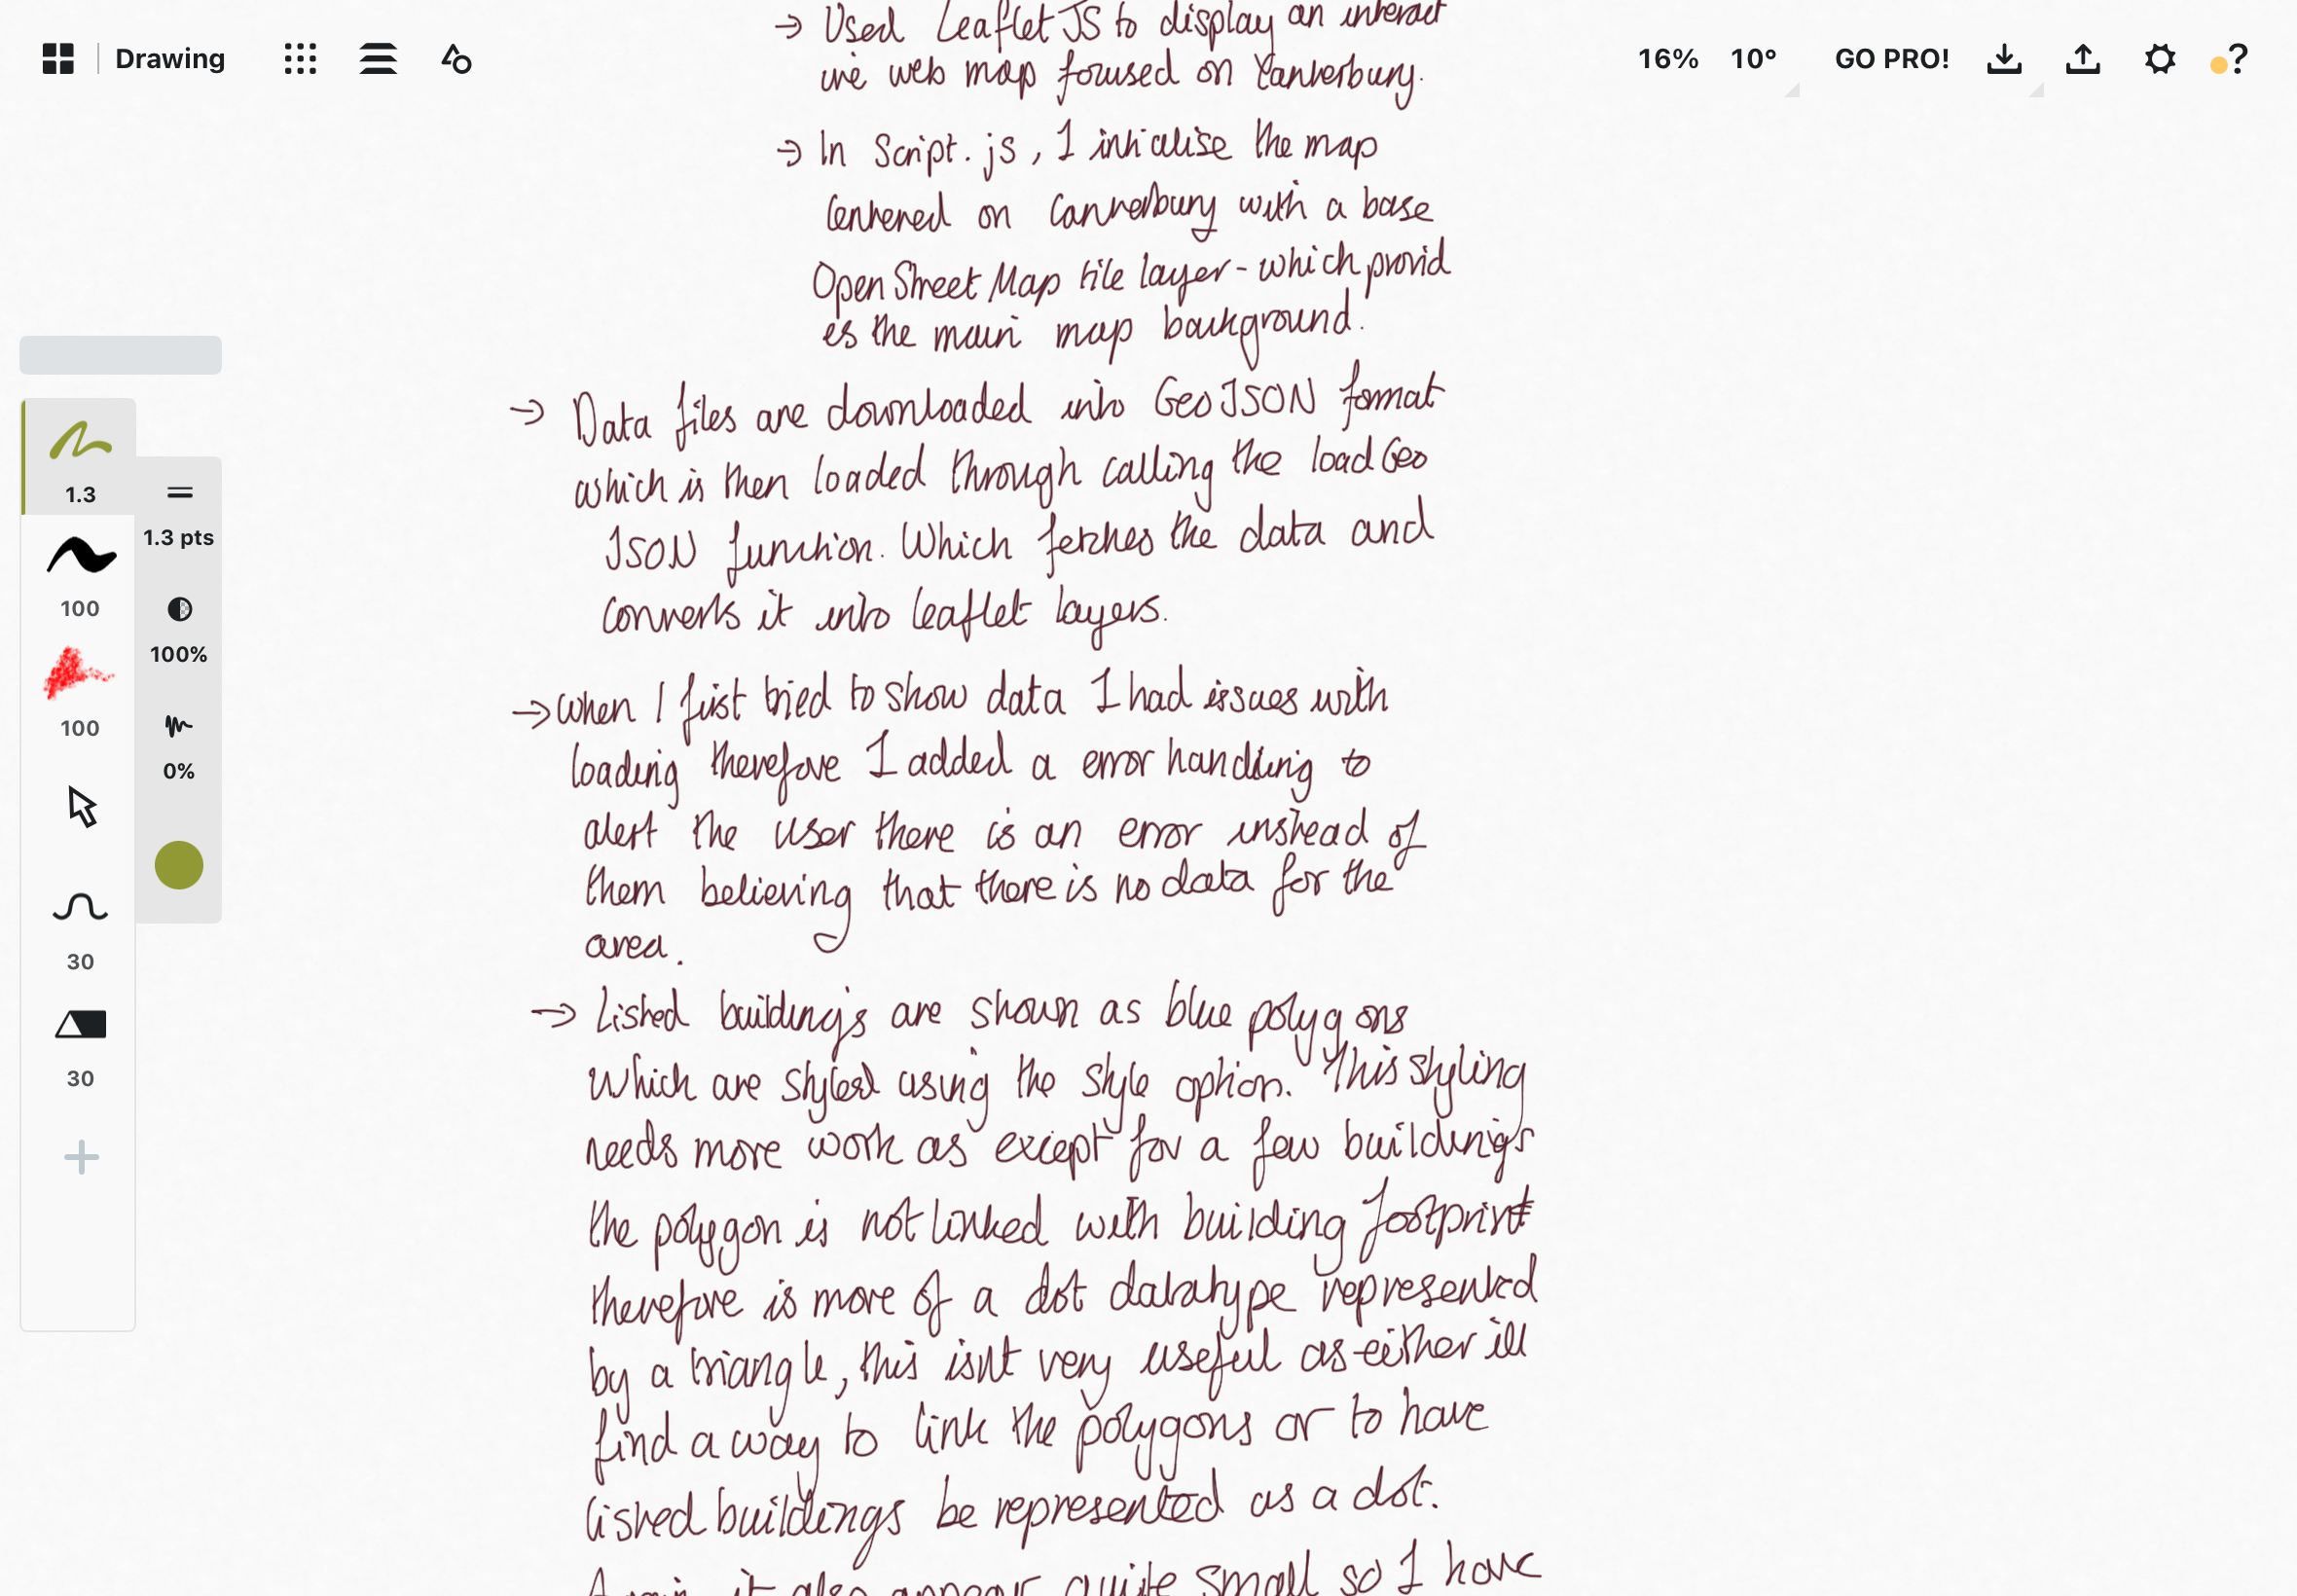 Drawing
16%
10°
GO PRO!
?
→ Used LeafletJS to display an interact
ive web map focused on Canterbury.
→ In Script.js, I initialise the map
centered on Canterbury with a base
OpenStreet Map tile layer - which provid
es the main map background.
→ Data files are downloaded into GeoJSON format
which is then loaded through calling the loadGeo
JSON function. Which fetches the data and
converts it into leaflet layers.
→ When I first tried to show data I had issues with
loading therefore I added a error handling to
alert the user there is an error instead of
them believing that there is no data for the
area.
→ Listed buildings are shown as blue polygons
which are styled using the style option. This styling
needs more work as except for a few buildings
the polygon is not linked with building footprint
therefore is more of a dot datatype represented
by a triangle, this isnt very useful as either ill
find a way to link the polygons or to have
listed buildings be represented as a dot.
Again it also appear quite small so I have
1.3
100
100
30
30
1.3 pts
100%
0%